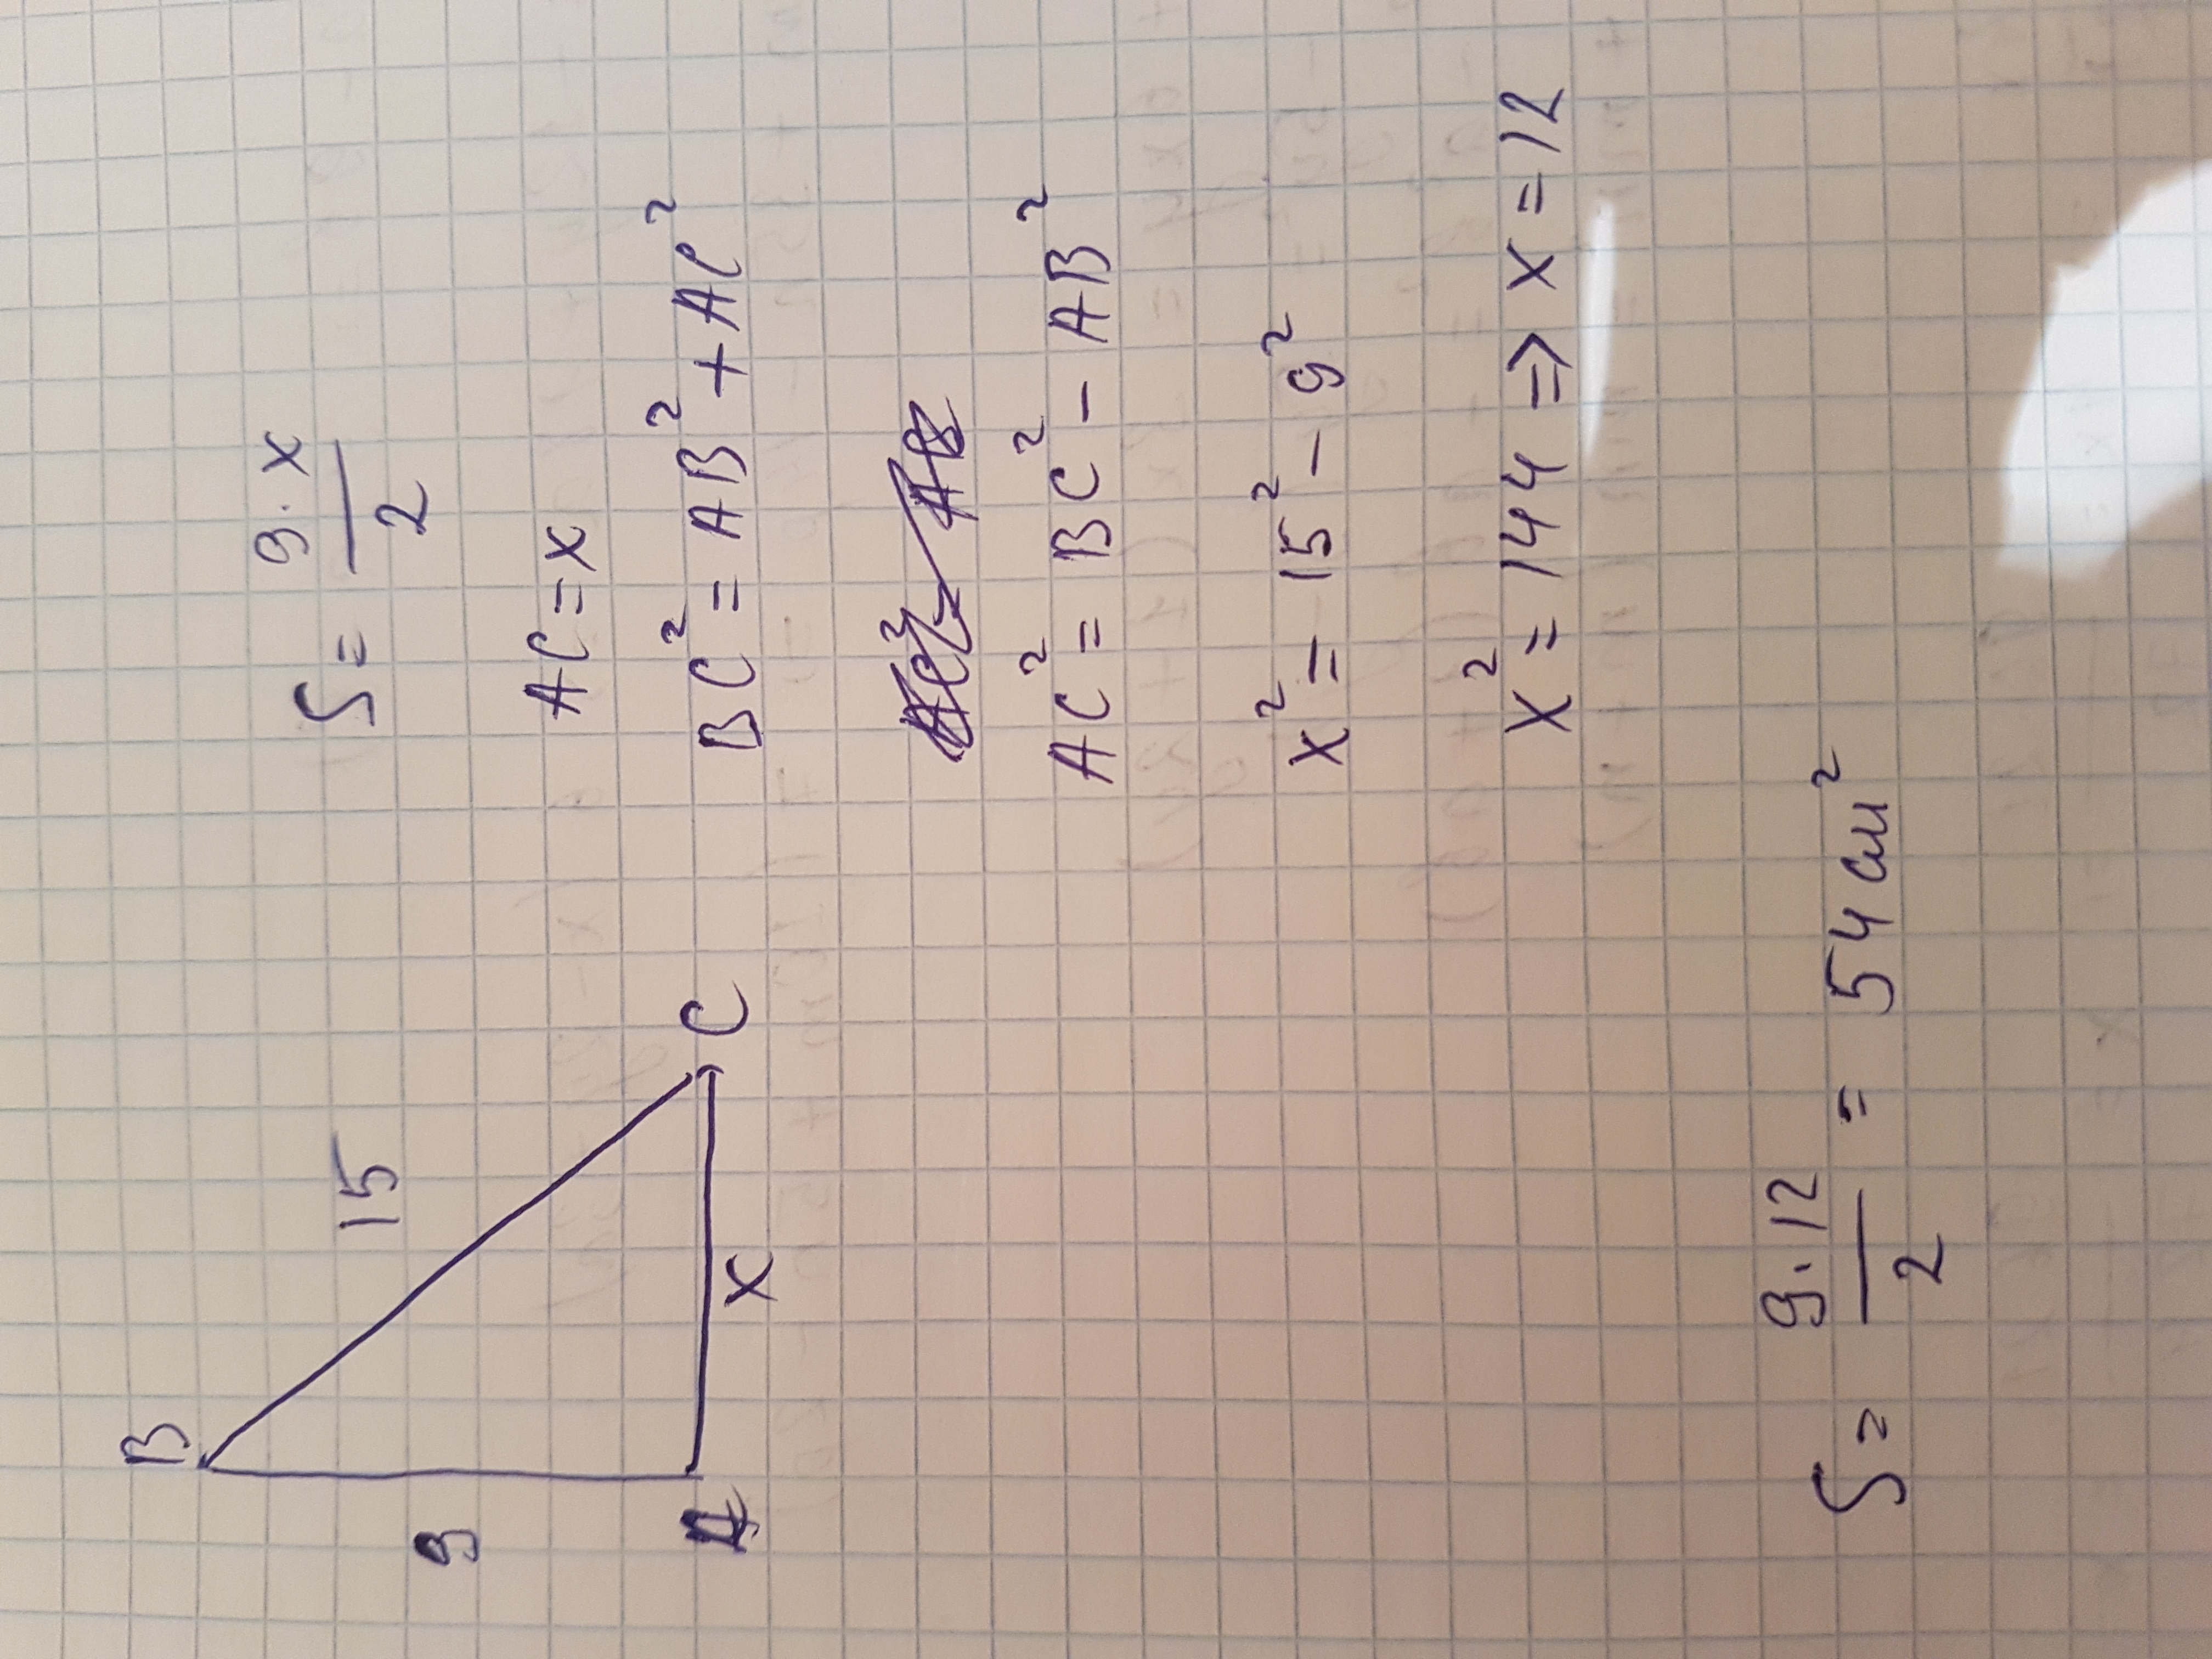 B
15
9
A
x
C
S = 9·x / 2
AC = x
BC² = AB² + AC²
AC² = BC² - AB²
x² = 15² - 9²
x² = 144 => x = 12
S = 9·12 / 2 = 54 см²